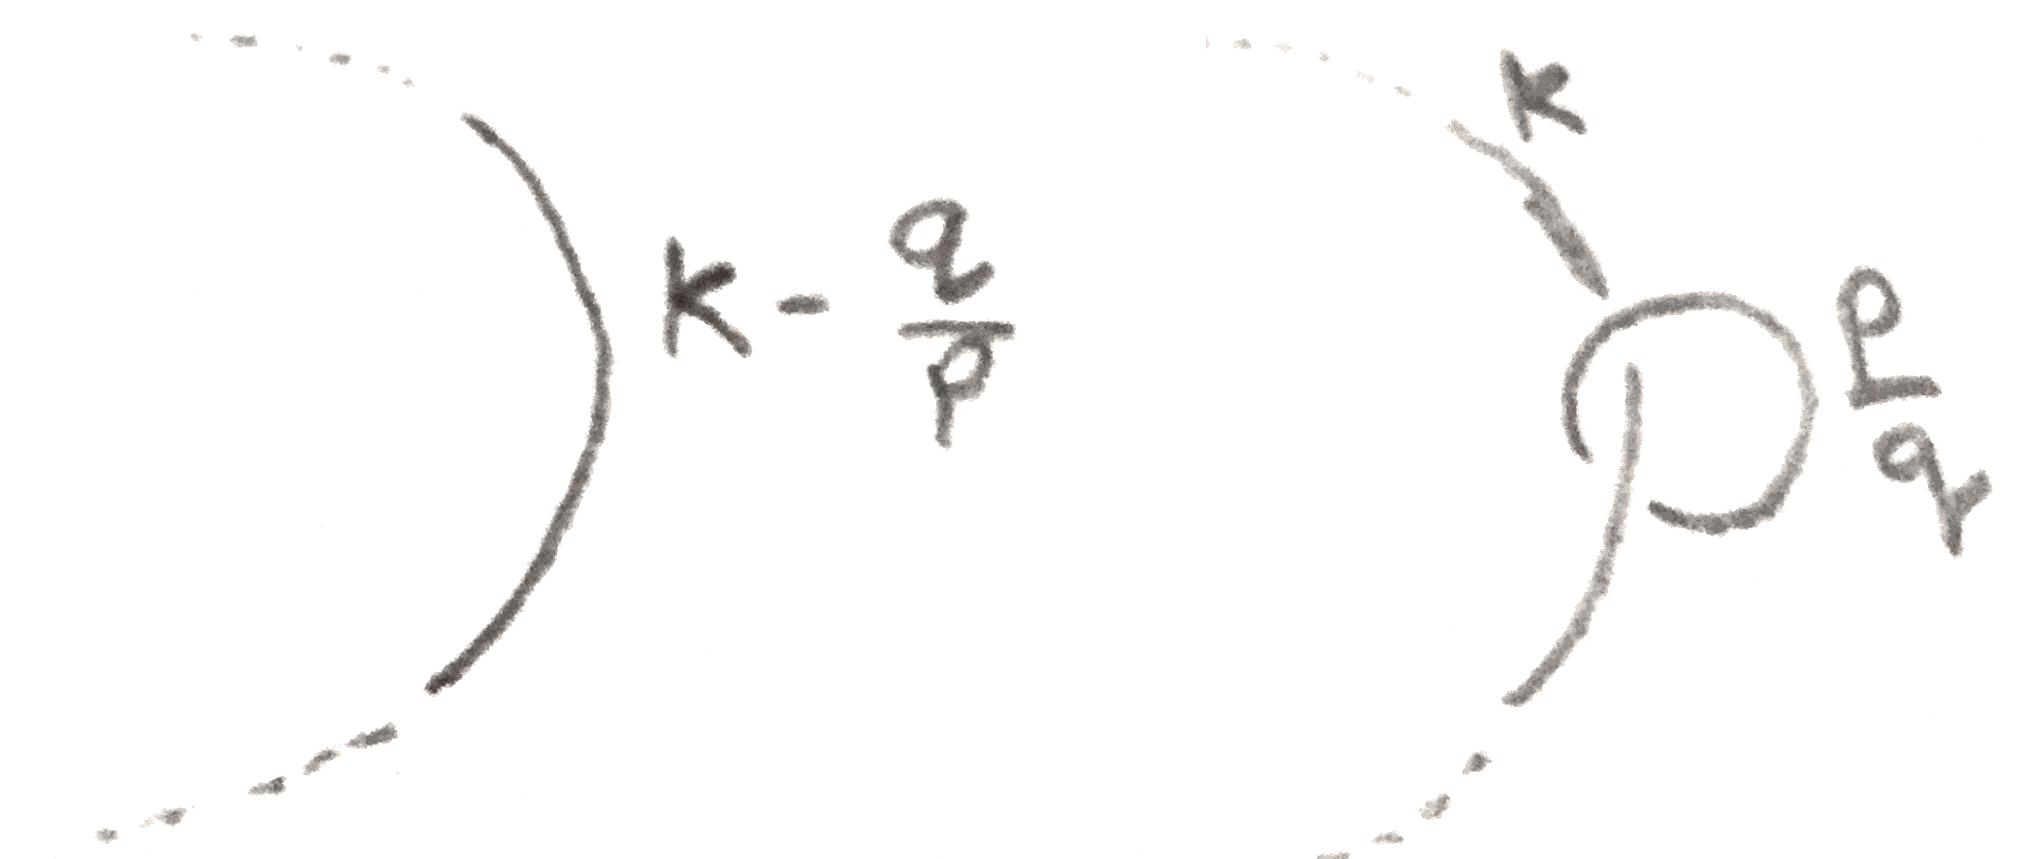 K - q/p
K
p/q